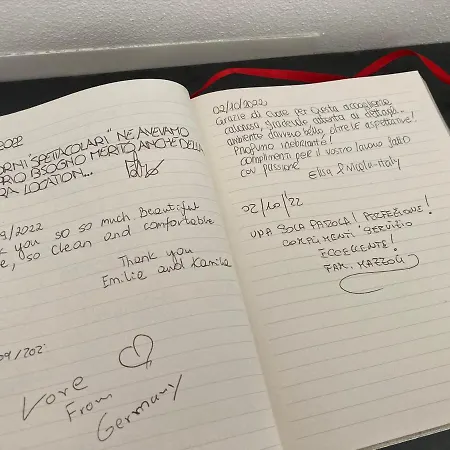 2022
ORNI "SPETTACOLARI" NE AVEVAMO
TRO BISOGNO MERITO ANCHE DELLA
RA LOCATION...
9/2022
k you so so much. Beautiful
e, so clean and comfortable
Thank you
Emilie and Kamila
09/202
Vore
From
Germany
02/10/2022
Grazie di cuore per questa accoglienza
calorosa, gradevole attenta ai dettagli...
ambiente davvero bello, oltre le aspettative!
Profumo inebriante!
complimenti per il vostro lavoro fatto
con passione
Elisa & Nicola - Italy
02/10/22
UNA SOLA PAROLA! PERFEZIONE!
COMPLIMENTI SERVIZIO
ECCELLENTE!
FAM. MAZZOLI